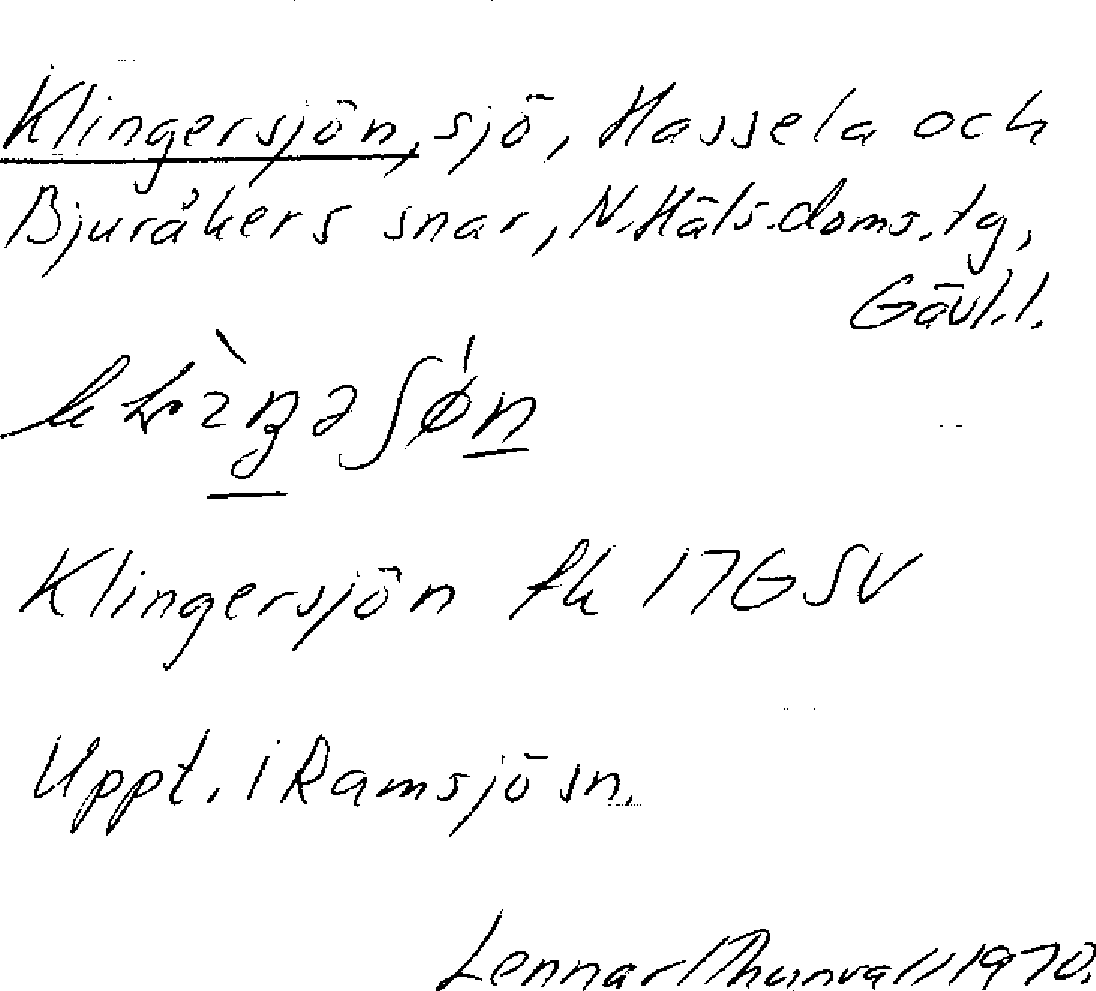 Klingersjön, sjö, Hassela och
Bjuråkers snar, N. Häls. doms. tg,
Gävl. l.
Klingersjön fk 17G SV
Uppt. i Ramsjö sn.
Lennart Thunvall 1970.